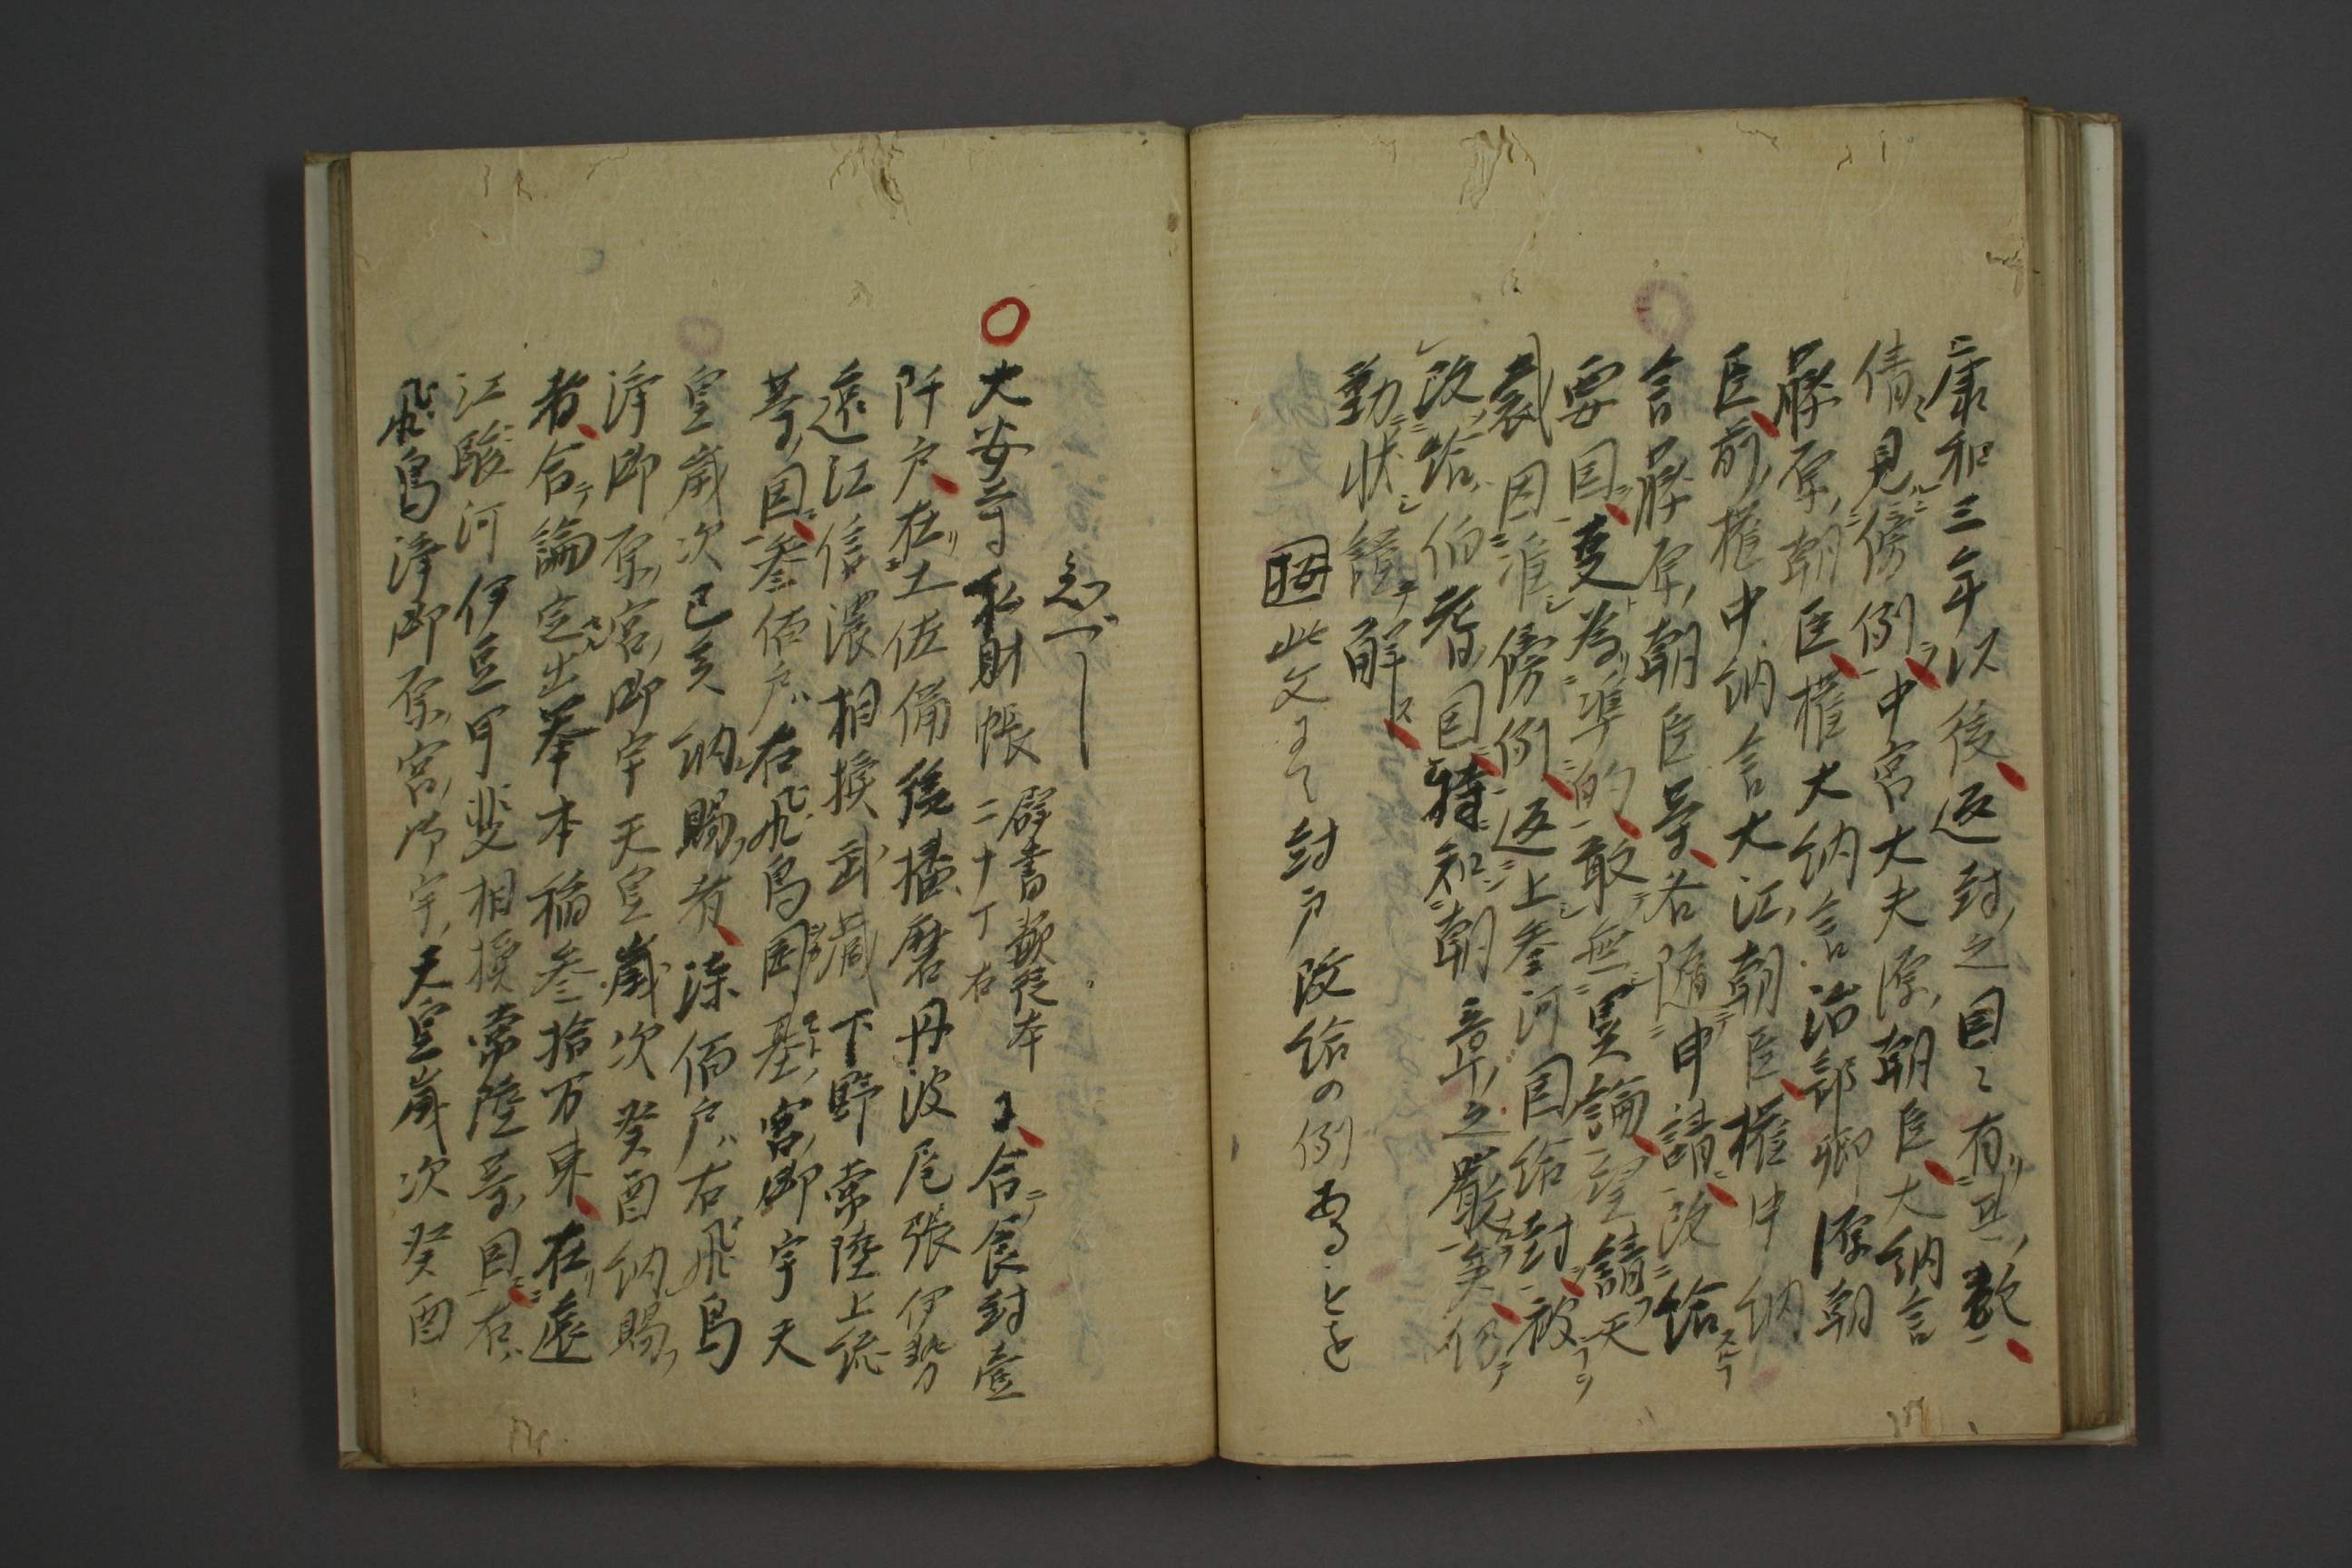 康和三年以後返封之国々有其数
倩見傍例中宮大夫源朝臣大納言
藤原朝臣権大納言治部卿源朝
臣前権中納言大江朝臣権中納
言藤原朝臣等各随申請改給
要国隻為準的敢無異論望請天
裁因准傍例返上参河国給封被
改給伯耆国特知朝章之厳矣仍
勒状謹解
此文にて封戸改給の例あることを
知べし
○大安寺私財帳 屏書歟徒本 二十丁右 に合食封壹
阡戸在土佐備後播磨丹波尾張伊勢
遠江信濃相摸武蔵下野常陸上総
等国参佰戸右飛鳥岡基宮御宇天
皇歳次己亥納賜者漆佰戸右飛鳥
浄御原宮御宇天皇歳次癸酉納賜
者合論定出挙本稲参拾万束在遠
江駿河伊豆甲斐相摸常陸等国右
飛鳥浄御原宮御宇天皇歳次癸酉